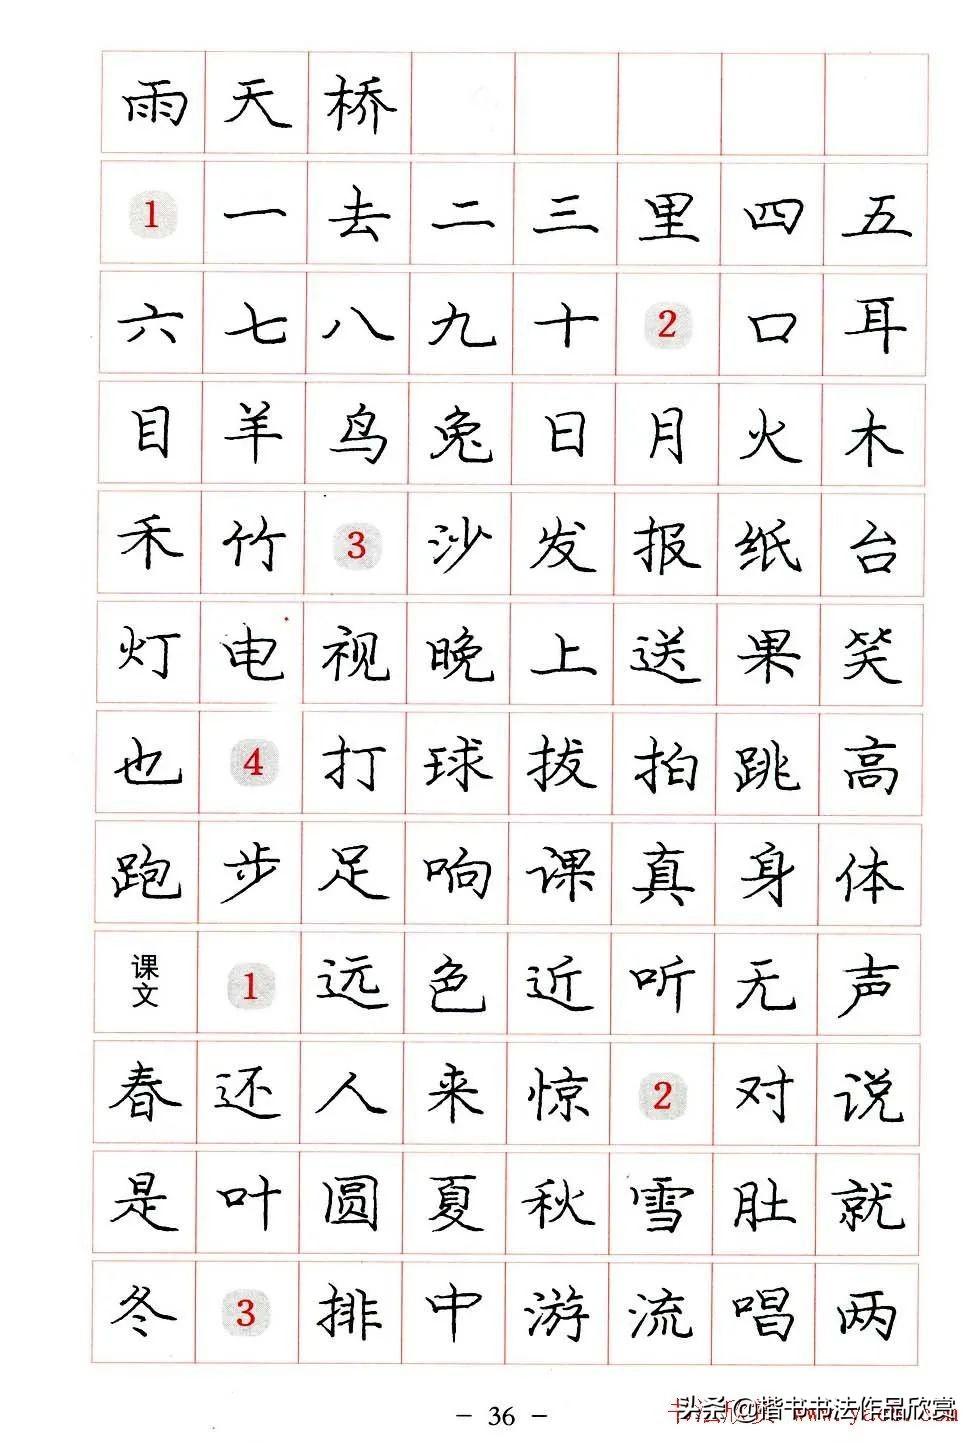 雨天桥
1一去二三里四五
六七八九十2口耳
目羊鸟兔日月火木
禾竹3沙发报纸台
灯电视晚上送果笑
也4打球拔拍跳高
跑步足响课真身体
课文1远色近听无声
春还人来惊2对说
是叶圆夏秋雪肚就
冬3排中游流唱两
- 36 -
头条@楷书书法作品欣赏